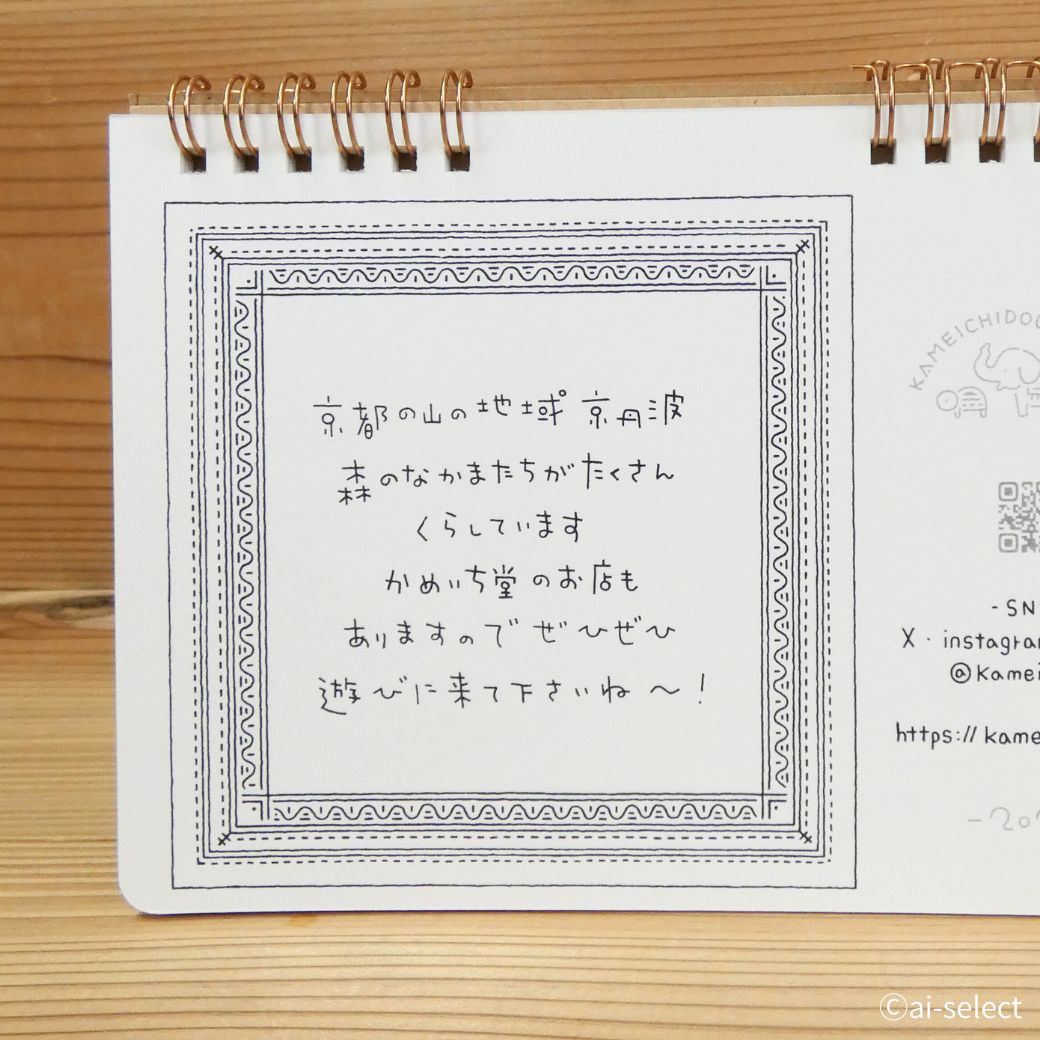 京都の山の地域 京丹波
森のなかまたちがたくさん
くらしています
かめいち堂のお店も
ありますのでぜひぜひ
遊びに来て下さいね〜!
KAMEICHIDOU
- SN
X・instagram
@kamei
https://kame
©ai-select